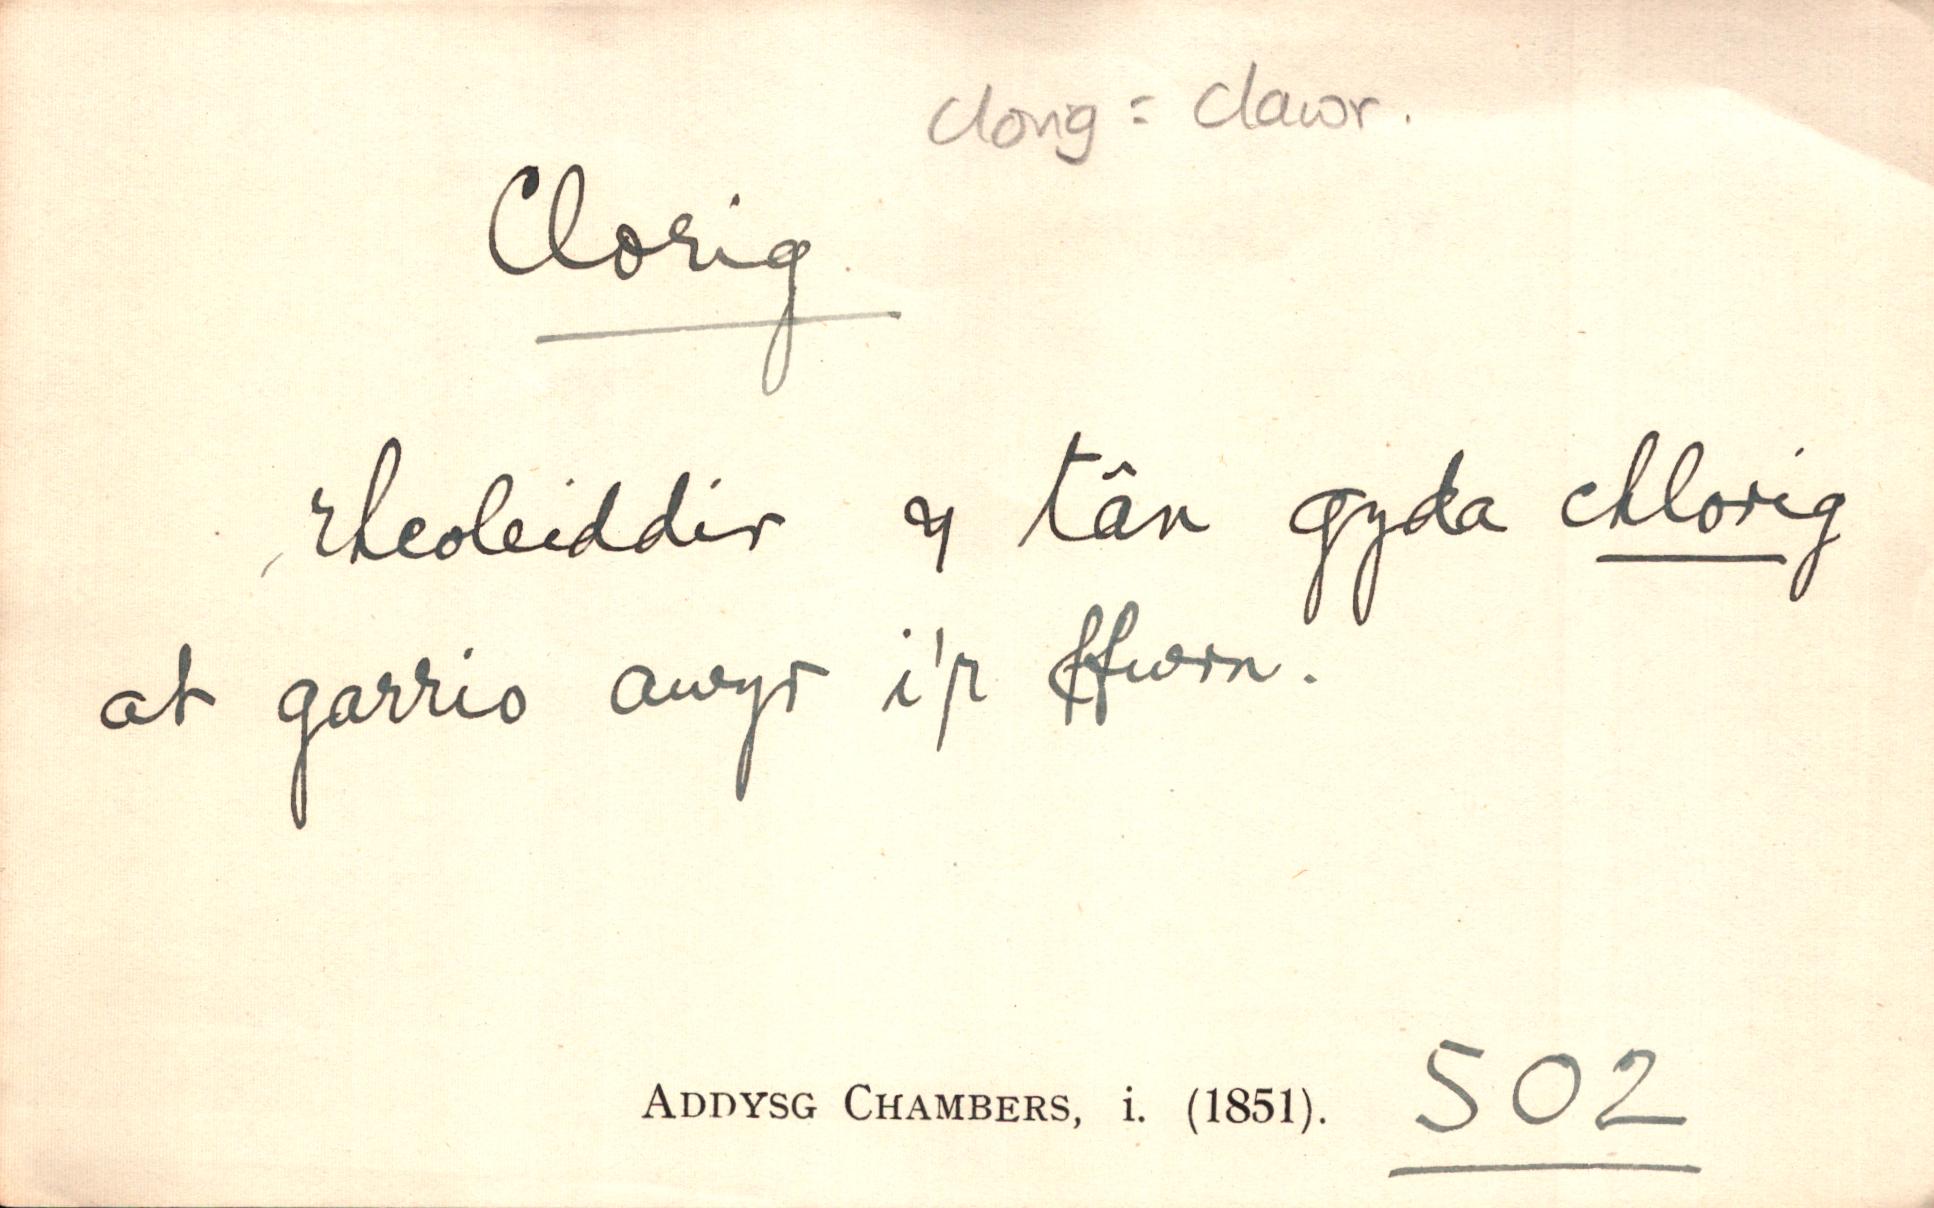 clorig = clawr.
Clorig
rheoleiddir y tân gyda chlorig
at garrio awyr i'r ffwrn.
ADDYSG CHAMBERS, i. (1851). 502